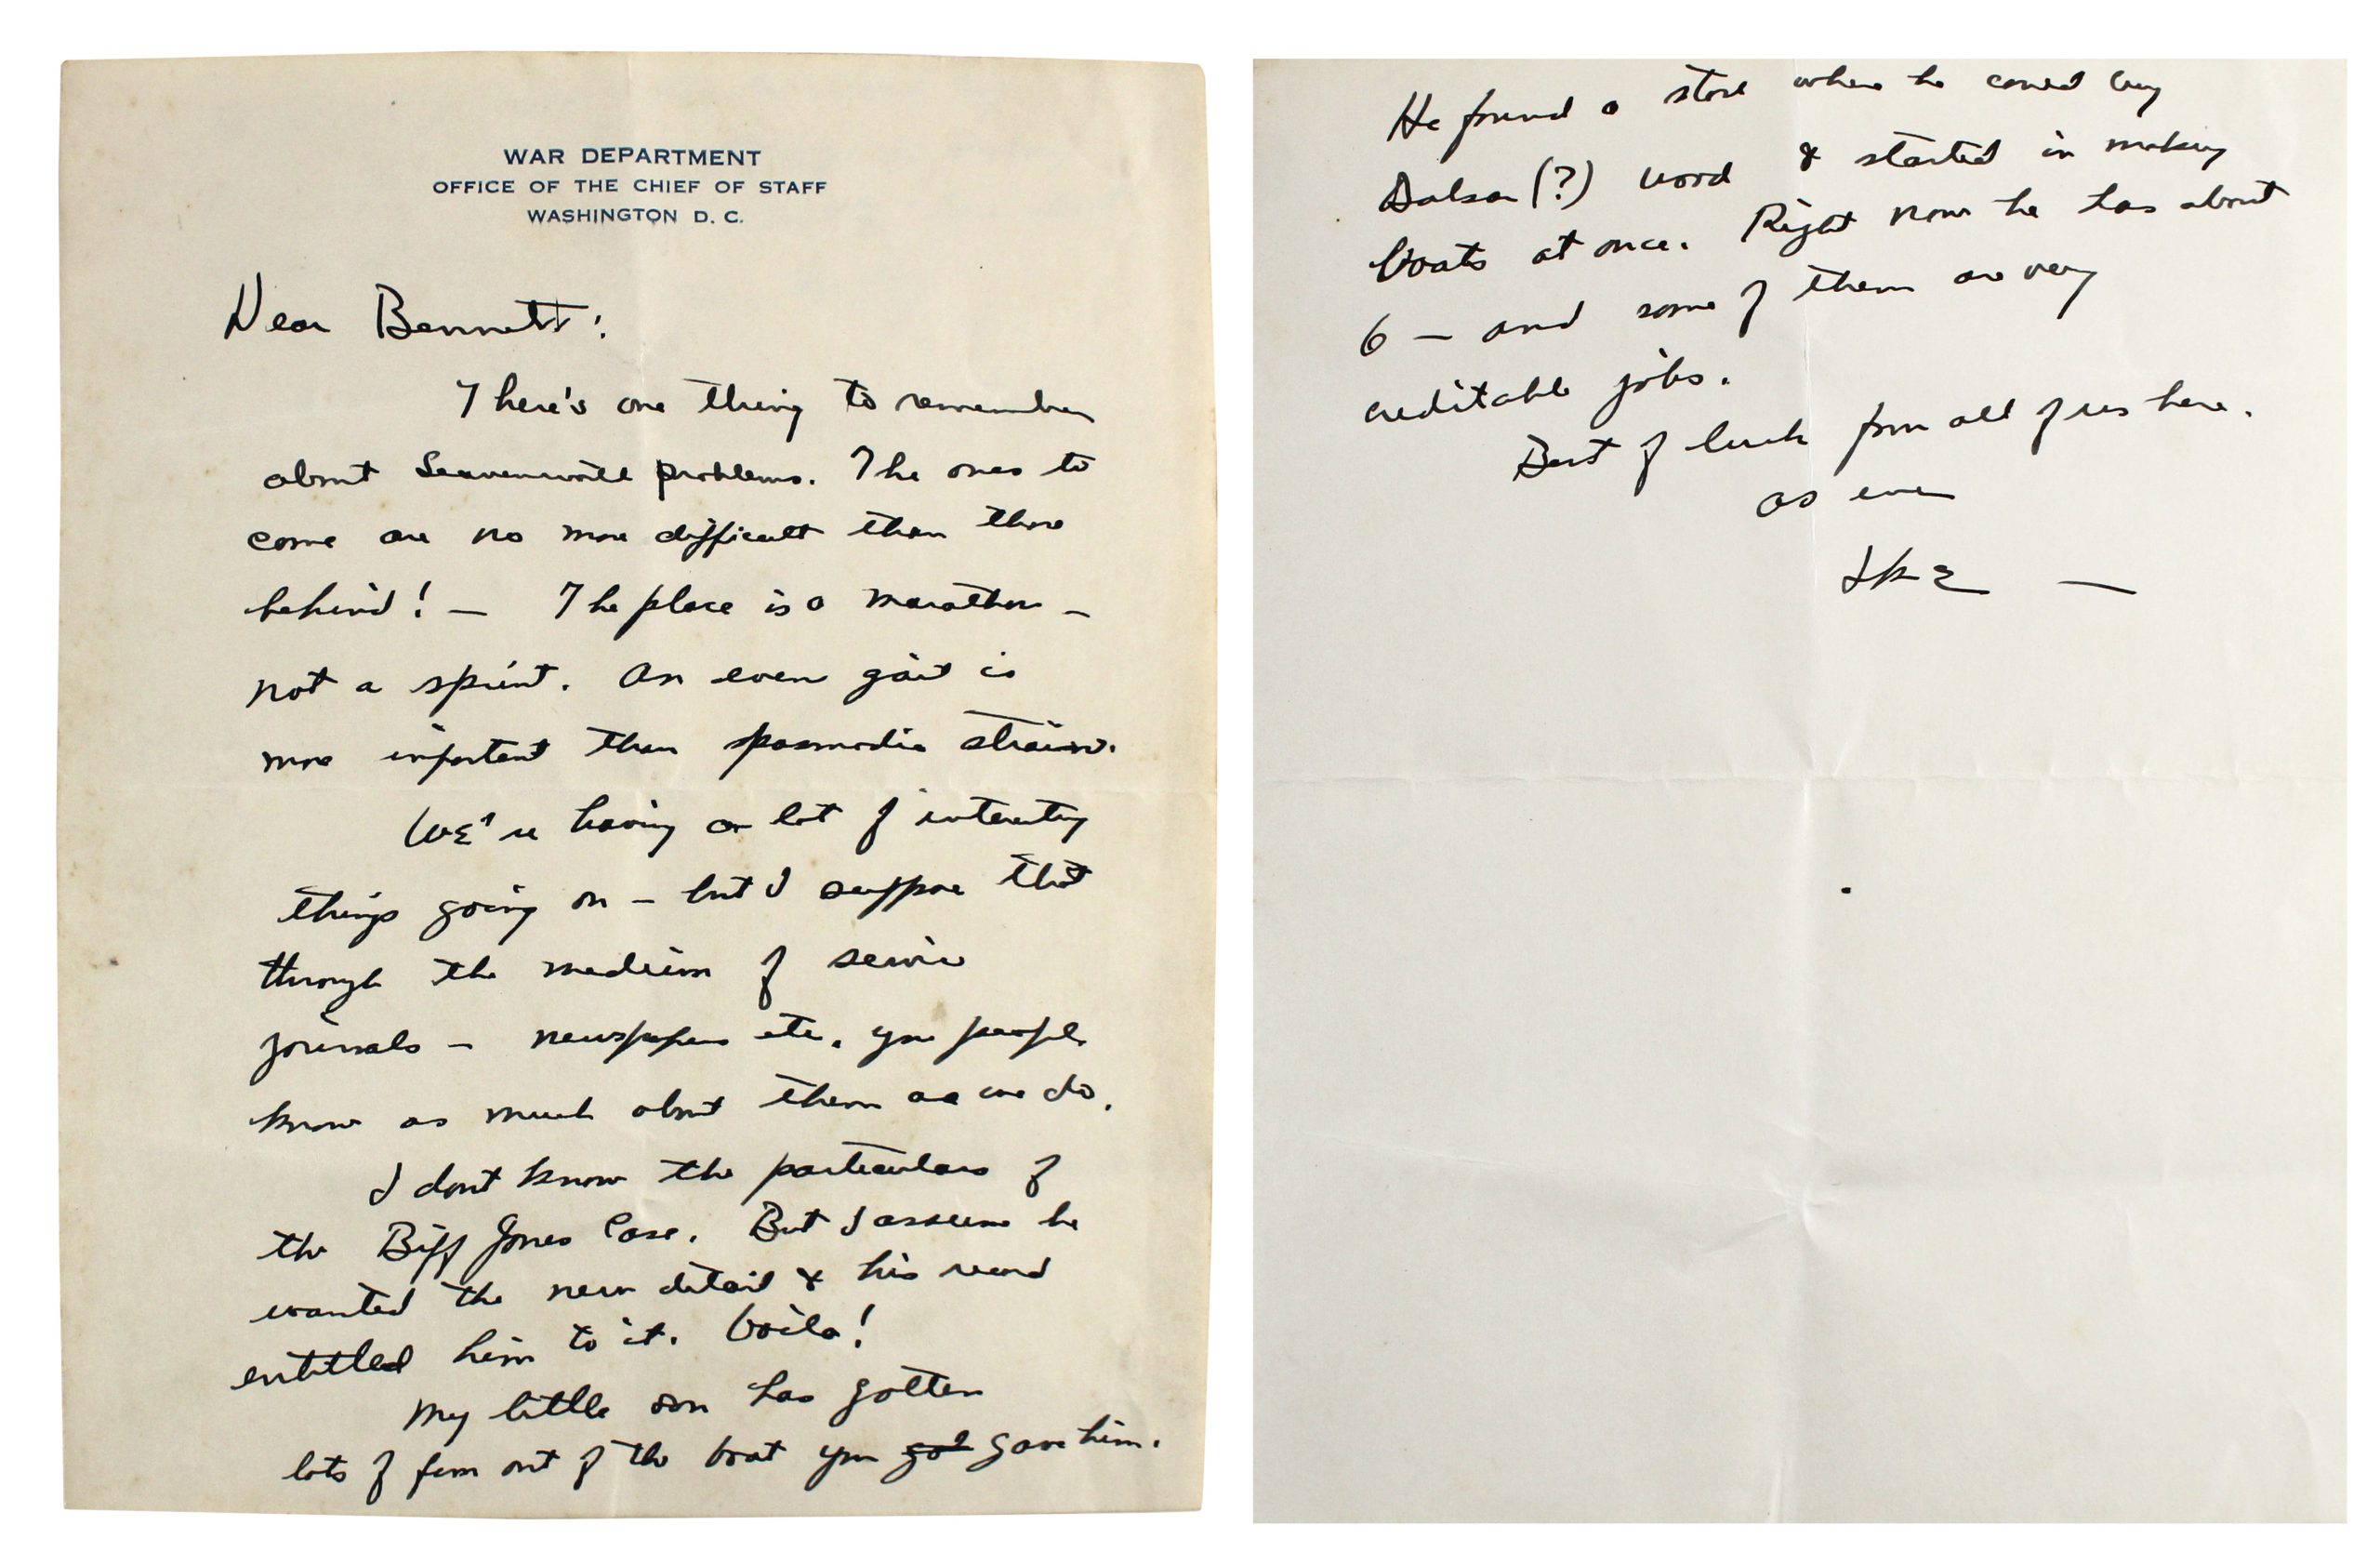 WAR DEPARTMENT
OFFICE OF THE CHIEF OF STAFF
WASHINGTON D. C.
Dear Bennett:
There's one thing to remember
about Leavenworth problems. The ones to
come are no more difficult than those
behind! — The place is a marathon —
not a sprint. An even gait is
more important than spasmodic strain.
We're having a lot of interesting
things going on — but I suppose that
through the medium of service
journals — newspapers etc. you people
know as much about them as we do.
I dont know the particulars of
the Biff Jones Case. But I assume he
wanted the new detail & his record
entitled him to it. Voila!
My little son has gotten
lots of fun out of the boat you got gave him.
He found a store where he could buy
Balsa (?) wood & started in making
boats at once. Right now he has about
6 — and some of them are very
creditable jobs.
Best of luck from all of us here.
as ever
Ike —